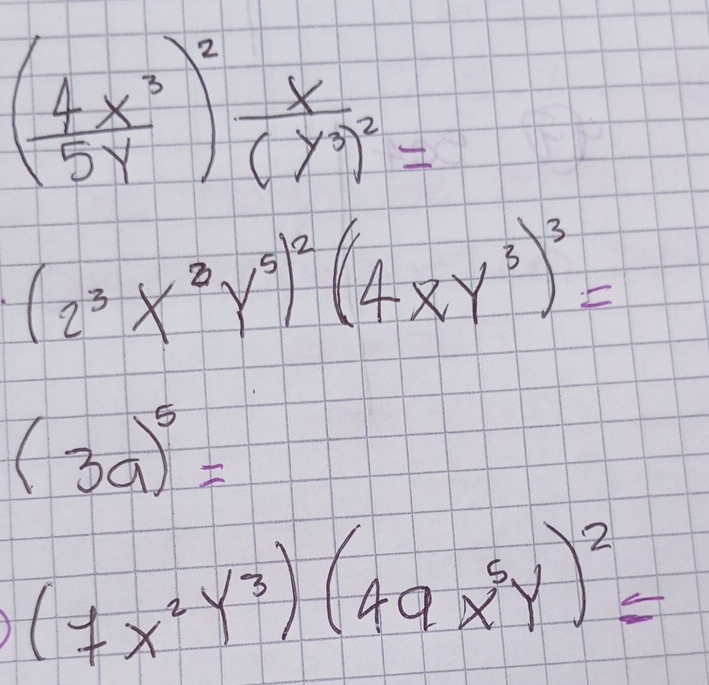 (4x³/5y)² x/(y³)² =
(2³x²y⁵)² (4xy³)³ =
(3a)⁵ =
(7x²y³) (49x⁵y)² =